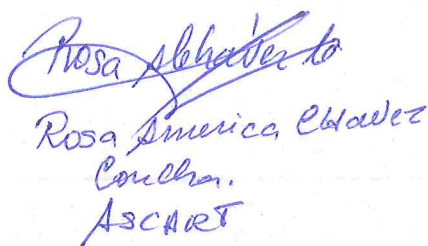 Rosa
Rosa America Chavez
Concha.
ASCART